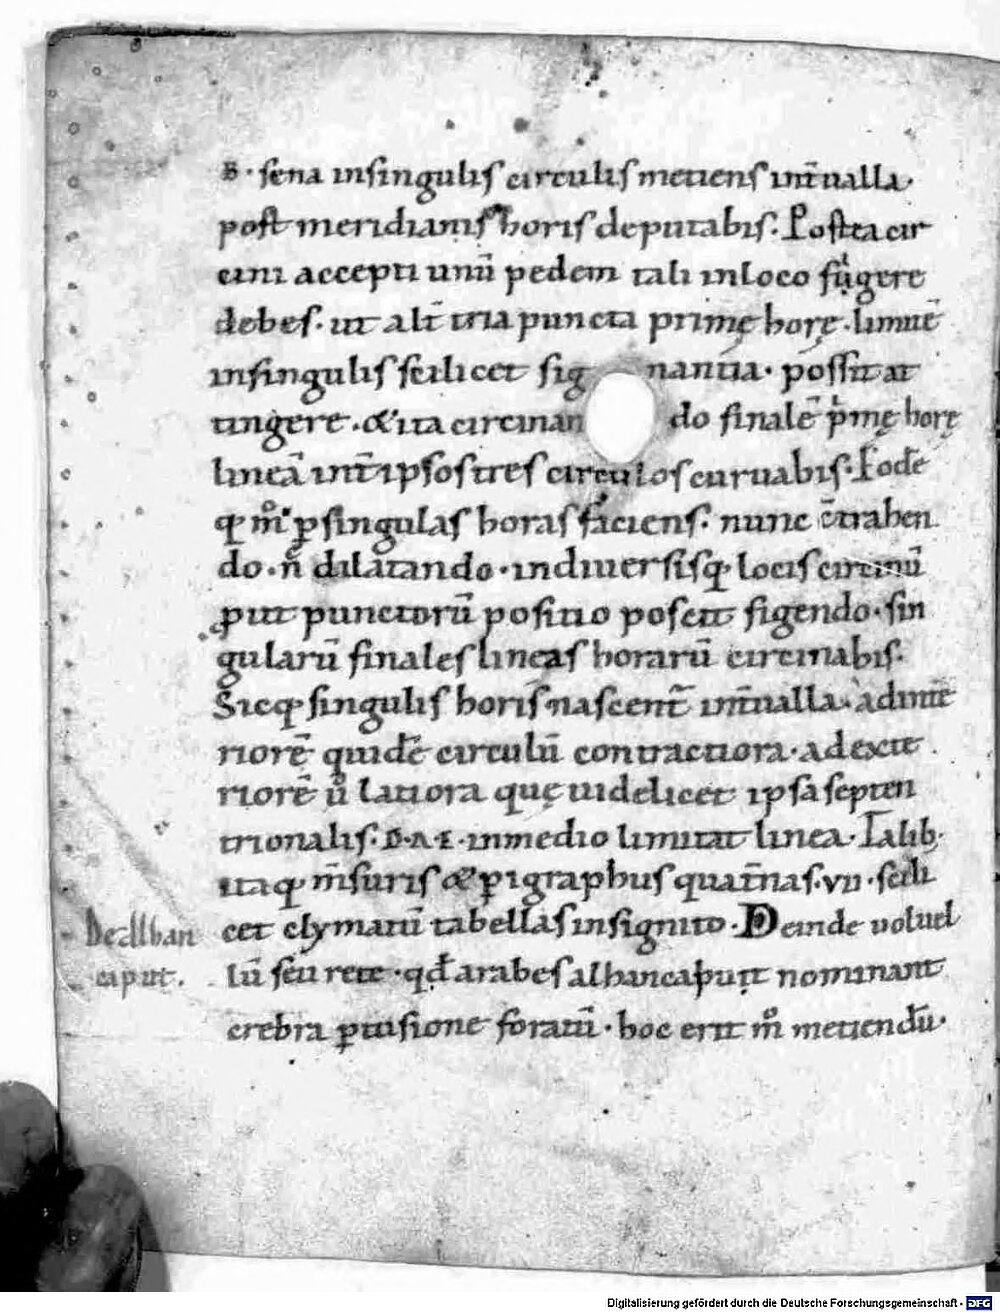 B · sena insingulis circulis metiens int̄ualla·
post meridianis horis deputabis. Postea cir
cini accepti unū pedem tali inloco fígere
debes. ut alt̄ tria puncta primę horę. limitē
insingulis scilicet sig nantia. possit at
tingere. & ita circinan do finalē p̄mę horę
lineā int̄ ipsos tres circulos curuabis. Eodē
q; m̊ ꝑ singulas horas faciens. nunc c̄trahen
do. n̄ dilatando. indiuersisq; locis circinū
put punctorū positio poscit figendo. sin
gularū finales lineas horarū circinabis.
Sicq; singulis horis nascent̄ int̄ualla. ad inte
riorē quidē circulū contractiora. ad exte
riorē ů latiora quę uidelicet ipsa septen
trionalis. D.A.E. inmedio limitat linea. Talib;
itaq; m̄suris & ꝑigraphus quat̄nas .vii. scili
cet clymatū tabellas insignito. Deinde voluel
Dealhan
caput.
lū seu rete. qđ arabes alhancaput nominant
crebra ꝑtusione foratū. hoc erit m̊ metiendū.
Digitalisierung gefördert durch die Deutsche Forschungsgemeinschaft - DFG